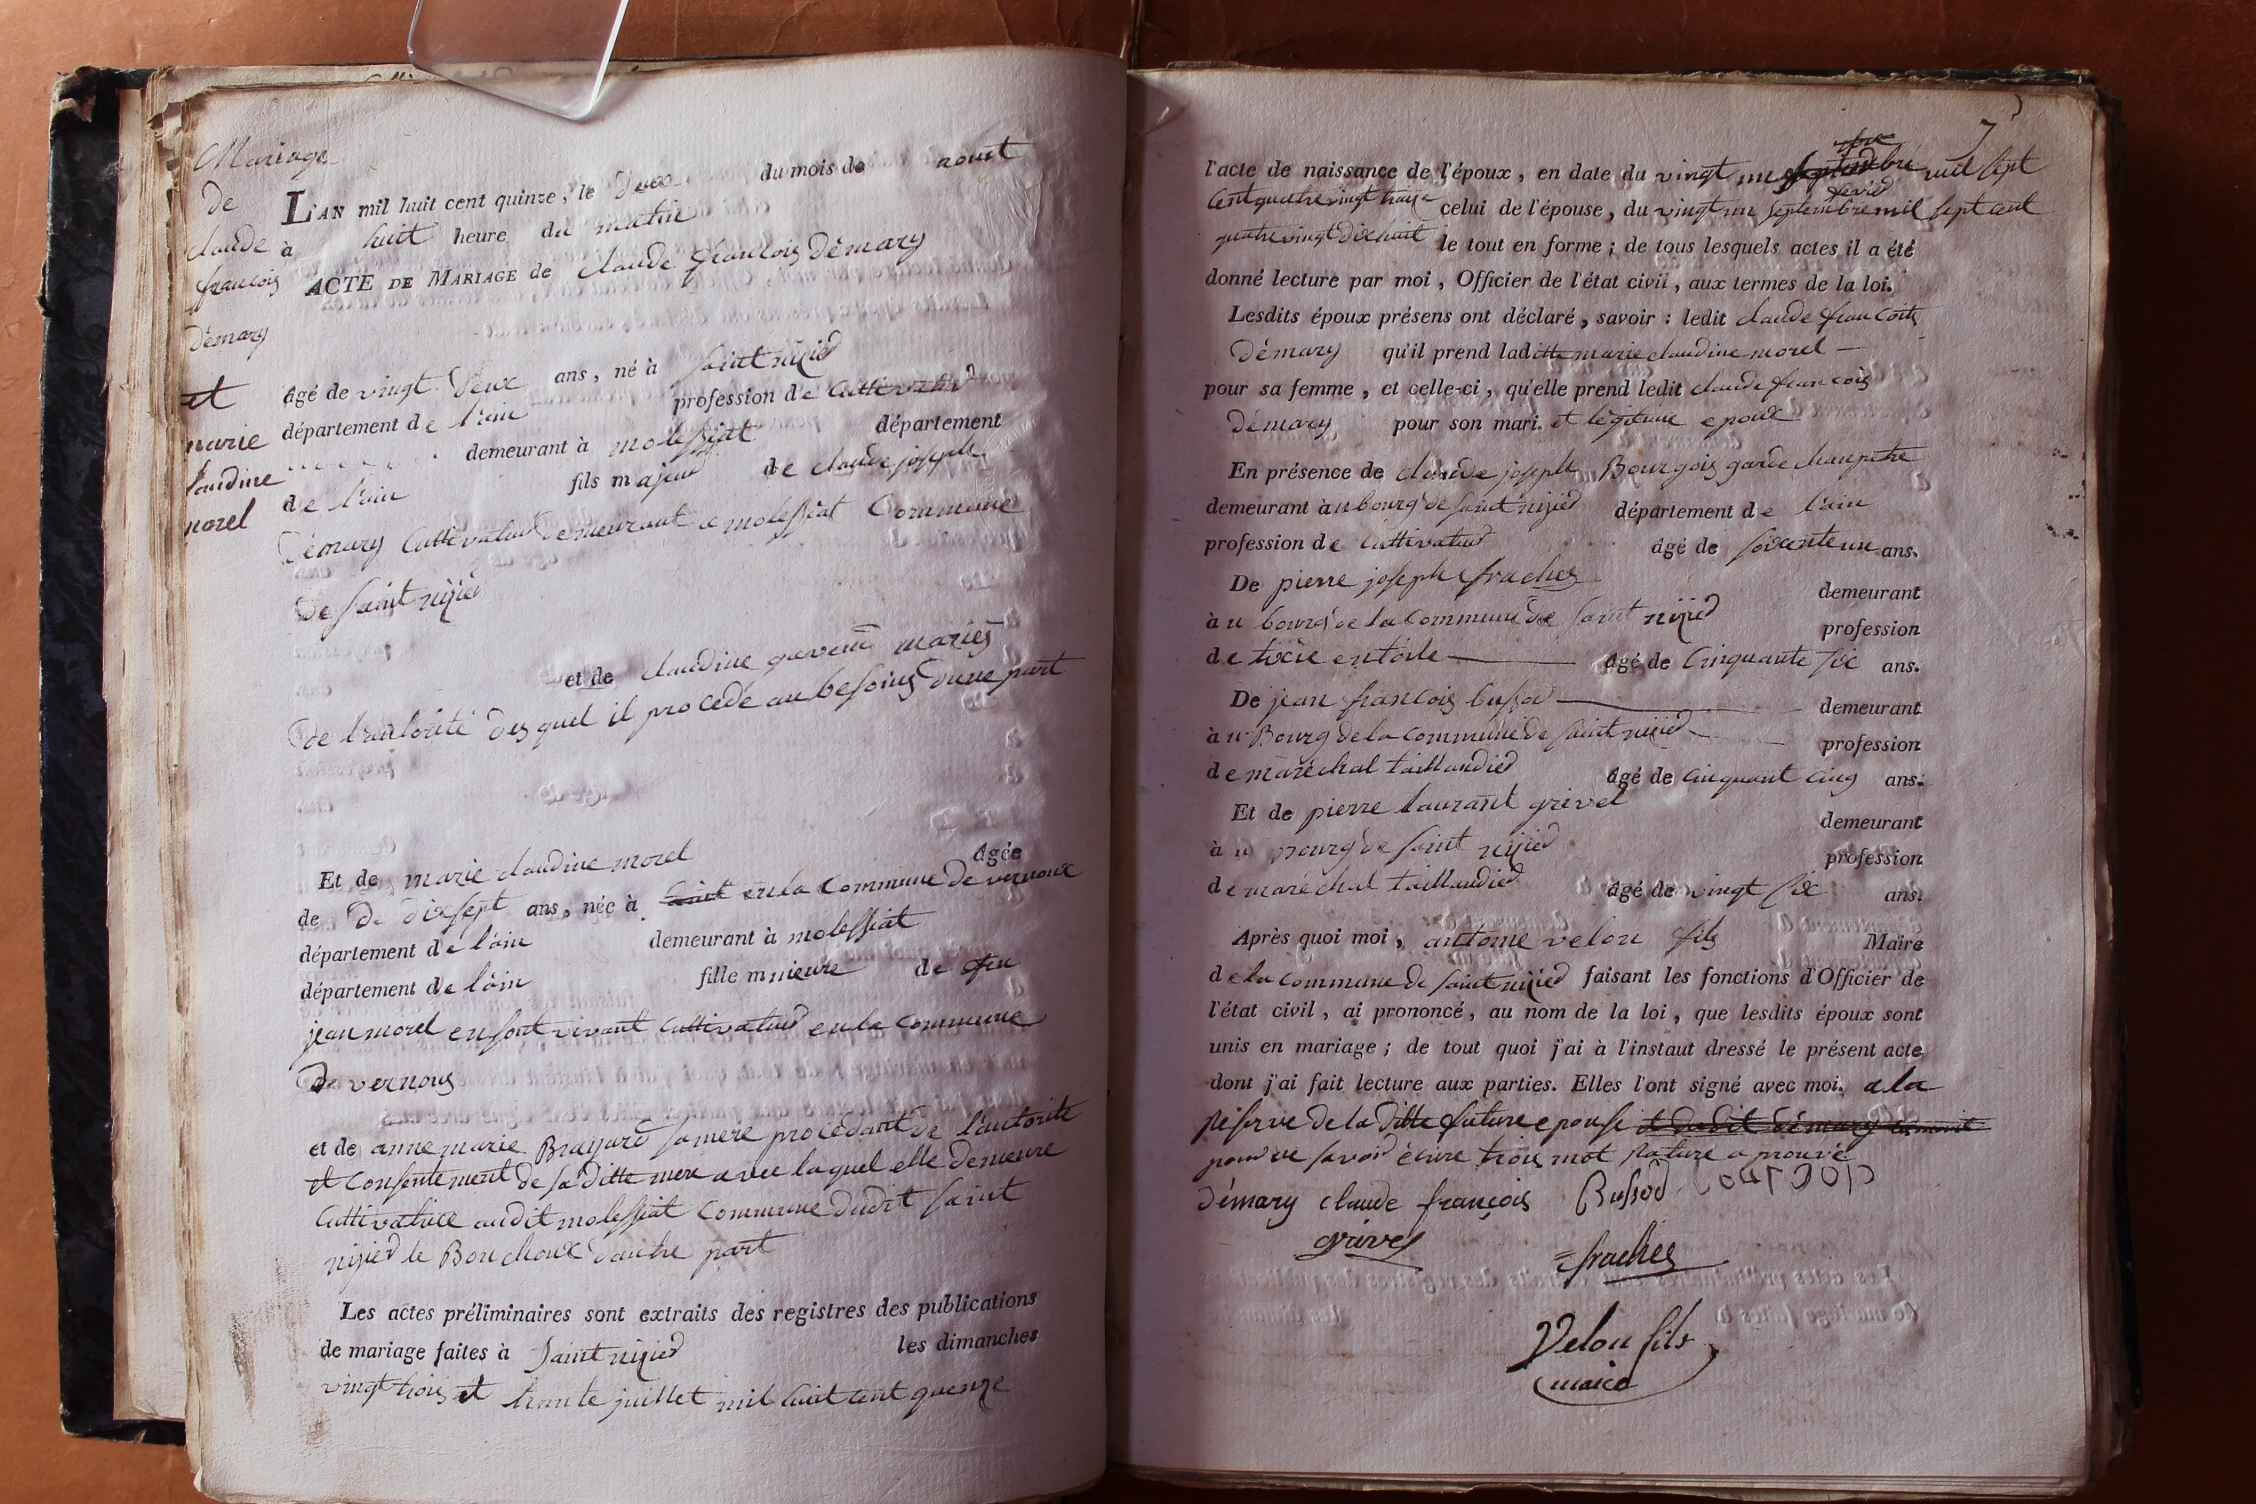 Mariage
de
claude
francois
Démary
et
marie
laudine
morel
L'AN mil huit cent quinze, le deux du mois de aout
à huit heure du matin
ACTE DE MARIAGE de claude francois Démary
âgé de vingt deux ans, né à saint nizied
département de l'ain profession de cultivateur
demeurant à molessiat département
de l'ain fils majeur de claude joseph
Démary Cultivateur demeurant a molessiat Commune
De saint nizied
et de claudine mariés
de l'autorité des quel il procede au besoins d'une part
Et de marie claudine morel âgée
de De dix sept ans, née à en la Commune De vernoux
département de l'ain demeurant à molessiat
département de l'ain fille mineure de feu
jean morel en sont vivant cultivateur en la Commune
De vernoux
et de anne marie Brayard sa mere procedant de l'autorité
et Consentement de sa ditte mere avec laquel elle demeure
Cultivatrice audit molessiat Commune dudit saint
nizied le Bouchoux d'autre part
Les actes préliminaires sont extraits des registres des publications
de mariage faites à Saint nizied les dimanches
vingt trois et trante juillet mil huit cent quenze
7
l'acte de naissance de l'époux, en date du vingt un septembre mil sept
Cent quatre vingt traize celui de l'épouse, du vingt un septembre mil sept cent
quatre vingt dix huit le tout en forme ; de tous lesquels actes il a été
donné lecture par moi, Officier de l'état civil, aux termes de la loi.
Lesdits époux présens ont déclaré, savoir : ledit claude francois
Démary qu'il prend laditte marie claudine morel
pour sa femme, et celle-ci, qu'elle prend ledit claude francois
Démary pour son mari. et légitime epoux
En présence de claude joseph Bourgois garde champetre
demeurant à u bourg de saint nizied département de l'ain
profession de cultivateur âgé de soixente un ans.
De pierre joseph frachez demeurant
à u bourg de la Commune de saint nizied profession
de en toile âgé de Cinquante six ans.
De jean francois bussod demeurant
à u Bourg de la Commune de saint nizied profession
de maréchal taillandied âgé de Cinquant Cinq ans.
Et de pierre laurant grivel demeurant
à u Bourg de saint nizied profession
de maréchal taillandied âgé de vingt six ans.
Après quoi moi, antoine velon fils Maire
de la Commune de saint nizied faisant les fonctions d'Officier de
l'état civil, ai prononcé, au nom de la loi, que lesdits époux sont
unis en mariage ; de tout quoi j'ai à l'instant dressé le présent acte,
dont j'ai fait lecture aux parties. Elles l'ont signé avec moi. a la
réserve de la ditte future epouse et dudit Démary
pour ne savoir écrire trois mot rature aprouvé
Démary claude françois Bussod
grivel frachez
Velon fils
maire